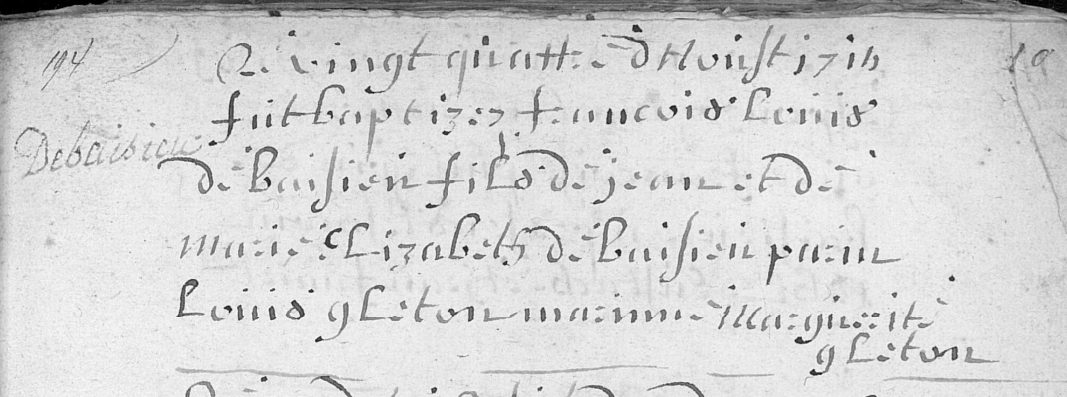 194
Le vingt quattre d'Aoust 1714
10
fut baptizez francois Louis
Debaisieu
de baisieu fils de jean et de
marie eLizabeth de baisieu parin
Louis gLeton marinne Marguerite
gLeton